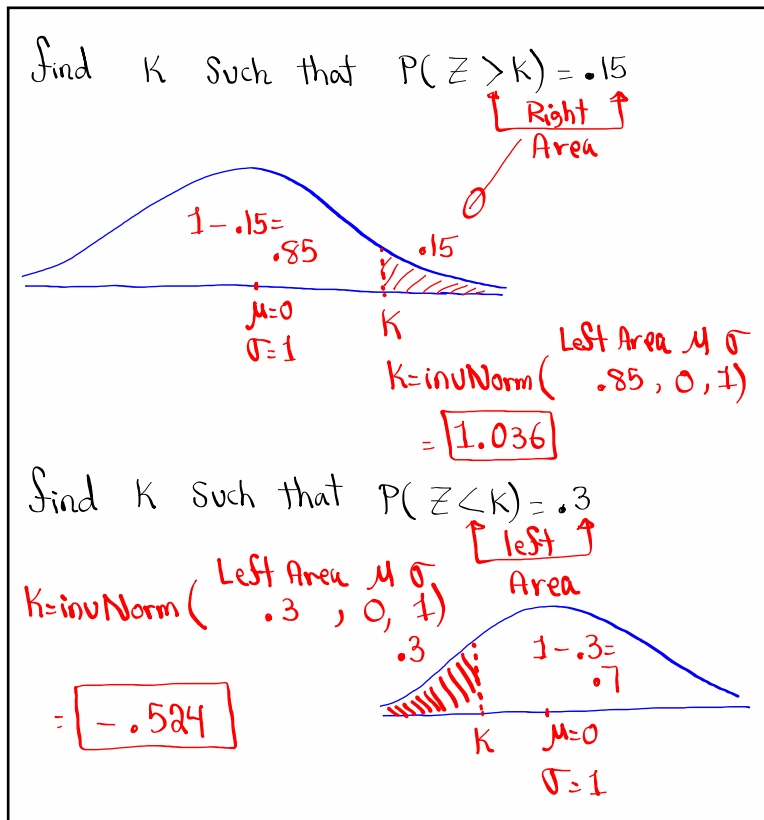 find K Such that P(Z>K)=.15
Right
Area
1-.15=
.85
.15
μ=0
σ=1
K
Left Area μ σ
K=invNorm( .85, 0, 1)
= 1.036
find K Such that P(Z<K)=.3
left
Area
Left Area μ σ
K=invNorm( .3 , 0, 1)
.3
1-.3=
.7
= -.524
K
μ=0
σ=1